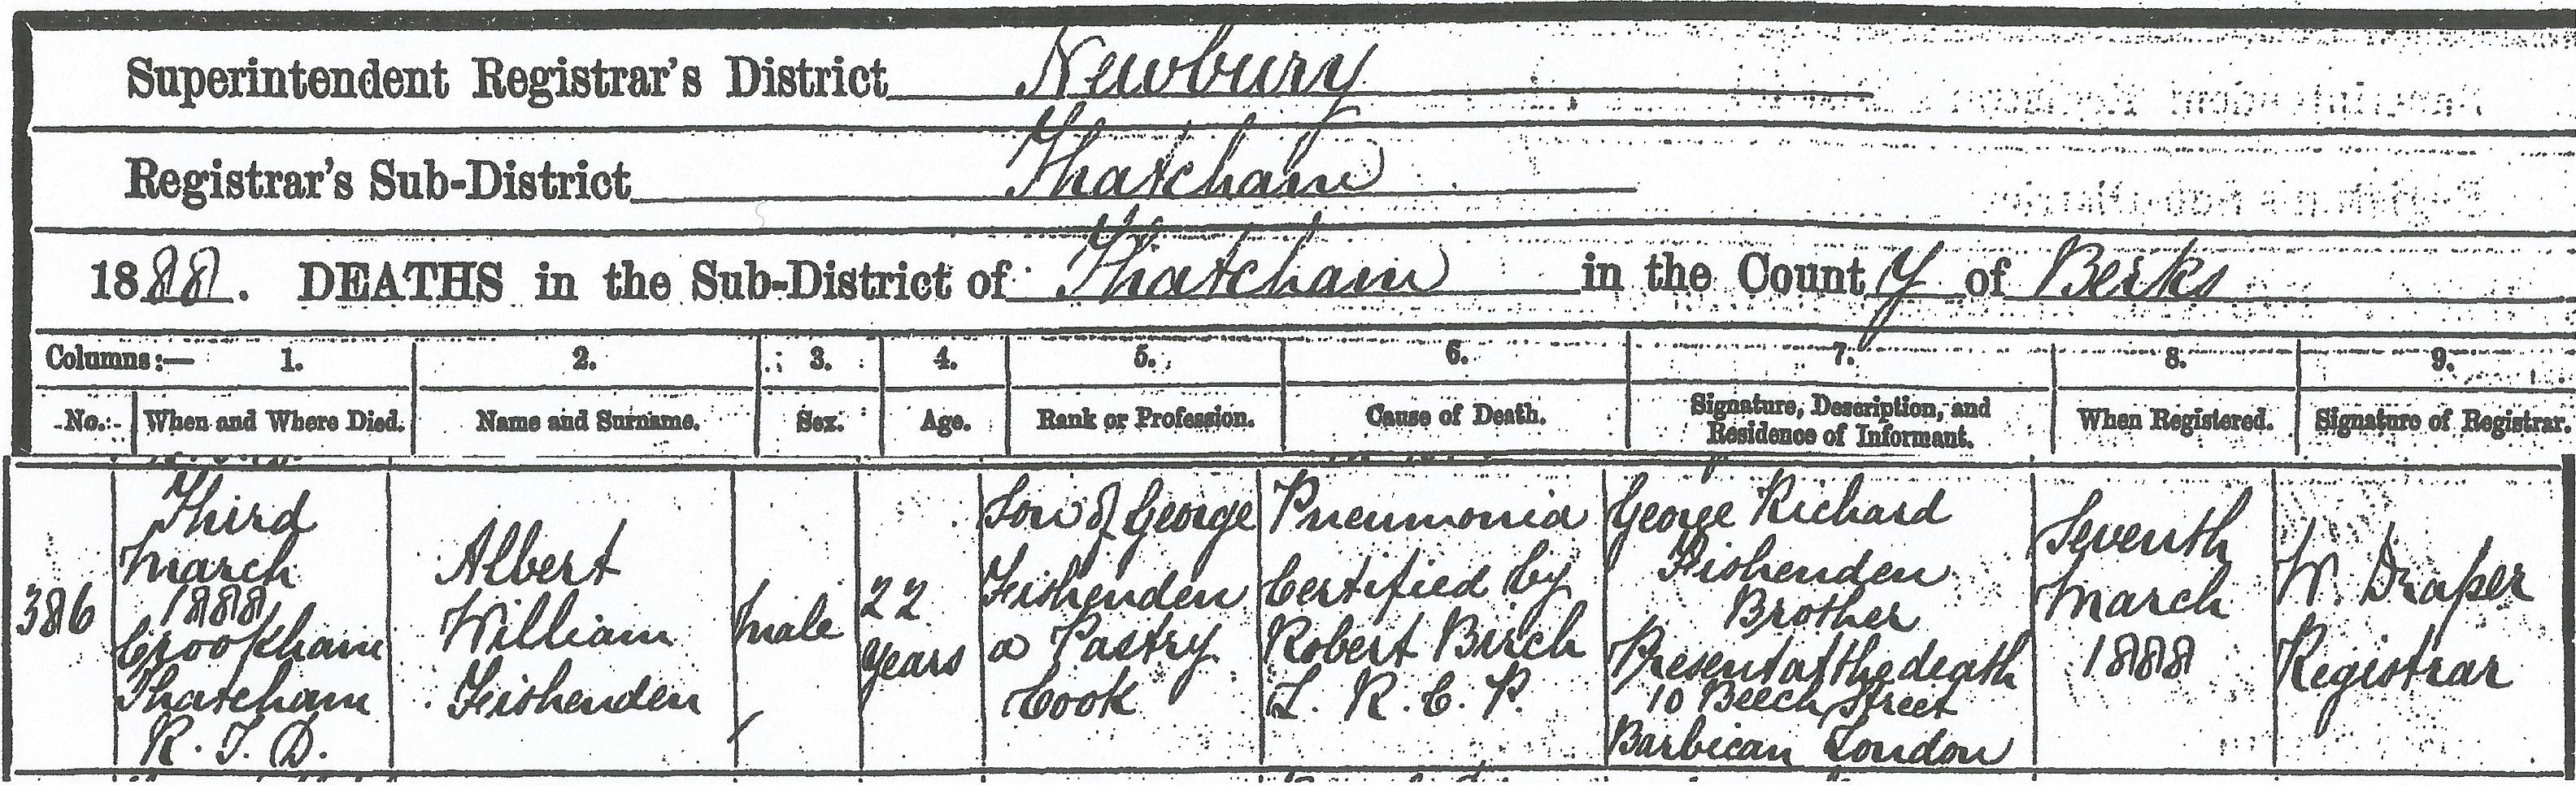 Superintendent Registrar's District Newbury
Registrar's Sub-District Thatcham
1888. DEATHS in the Sub-District of Thatcham in the County of Berks
Columns:— 1. 2. 3. 4. 5. 6. 7. 8. 9.
No. When and Where Died. Name and Surname. Sex. Age. Rank or Profession. Cause of Death. Signature, Description, and Residence of Informant. When Registered. Signature of Registrar.
386
Third
March
1888
Crookham
Thatcham
R. S. D.
Albert
William
Fishenden
Male
22
years
Son of George
Fishenden
a Pastry
Cook
Pneumonia
Certified by
Robert Birch
L. R. C. P.
George Richard
Fishenden
Brother
Present at the death
10 Beech Street
Barbican London
Seventh
March
1888
W. Draper
Registrar